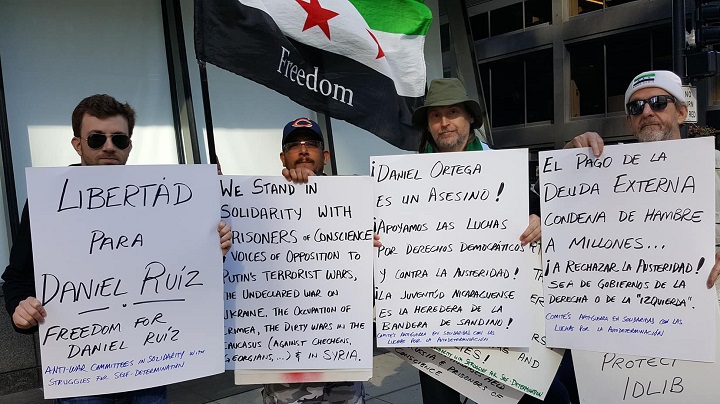 Freedom
LIBERTÁD
PARA
DANIEL RUÍZ
FREEDOM FOR
DANIEL RUÍZ
ANTI-WAR COMMITTEES IN SOLIDARITY WITH
STRUGGLES FOR SELF-DETERMINATION
WE STAND IN
SOLIDARITY WITH
PRISONERS OF CONSCIENCE
VOICES OF OPPOSITION TO
PUTIN'S TERRORIST WARS,
THE UNDECLARED WAR ON
UKRAINE, THE OCCUPATION OF
CRIMEA, THE DIRTY WARS IN THE
CAUCASUS (AGAINST CHECHENS,
GEORGIANS, ...) & IN SYRIA.
¡DANIEL ORTEGA
ES UN ASESINO!
¡APOYAMOS LAS LUCHAS
POR DERECHOS DEMOCRÁTICOS
Y CONTRA LA AUSTERIDAD!
¡LA JUVENTÚD NICARAGUENSE
ES LA HEREDERA DE LA
BANDERA DE SANDINO!
EL PAGO DE LA
DEUDA EXTERNA
CONDENA DE HAMBRE
A MILLONES...
¡A RECHAZAR LA AUSTERIDAD!
SEA DE GOBIERNOS DE LA
DERECHA O DE LA "IZQUIERDA".
COMITÉS ANTIGUERRA EN SOLIDARIDAD CON LAS
LUCHAS POR LA AUTODETERMINACIÓN
PROTECT
IDLIB
PRISONERS OF
CONSCIENCE
NO
TURN
RED